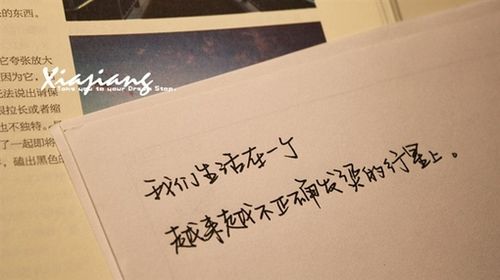 的东西。
它夸张放大
因为它，
法说出请保
拉长或者缩
也不独特。
了一起即将
磕出黑色的
Xiajiang
Take you to your Dream Stop.
我们生活在一个
越来越不 发烫的行星上。